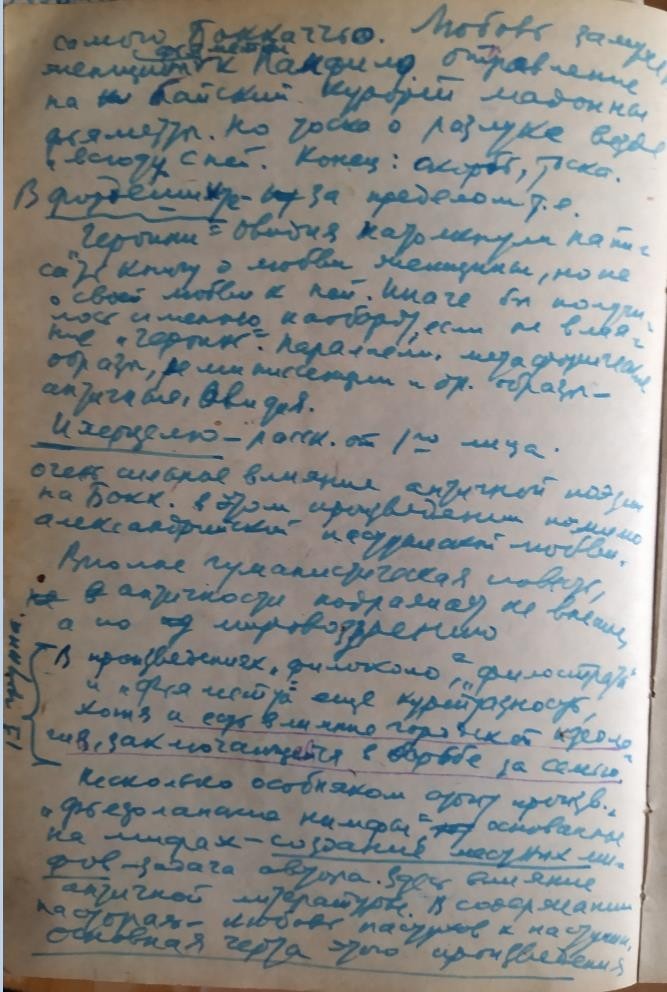 самого Боккаччьо. Любовь замуж
фьяметты
женщины к Панфило отправление
на Байский курорт мадонны
фьяметты. Но тоска о разлуке везде
всюду с ней. Конец: скорбь, тоска.
В за пределом т.е.
"Героини" Овидия натолкнули напи-
сать книгу о любви женщины, но не
о своей любви к ней. Иначе бы получи-
лось именно наоборот, если не влия-
ние "героинь". Параллели. метафорические
образы, реминисценции и др. образы-
античные, Овидия.
расск. от 1го лица.
очень сильное влияние античной поэзии
на Бокк. в этом произведении помимо
александрийской пастушеской любви.
Вполне гуманистическая повесть,
античности подражает не внешне
а по мировоззрению
В произведениях "филоколо", "филострато"
и "фьяметта" еще куртуазность,
хотя и есть влияние городской идеоло-
гии, заключающейся в борьбе за семью.
Несколько особняком стоит произв.
"фьезоланские нимфы" основанные
на мифах - создание местных ми-
фов - задача автора. Здесь влияние
античной литературы. В содержании
пастораль - любовь пастухов к пастушк.
основная черта этого произведения